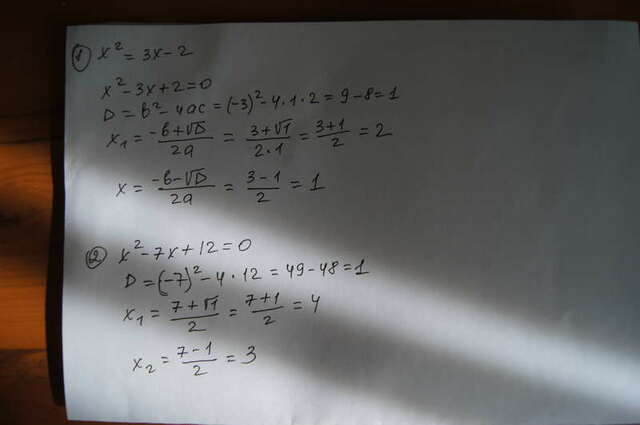 1) x² = 3x - 2
x² - 3x + 2 = 0
D = b² - 4ac = (-3)² - 4·1·2 = 9 - 8 = 1
x₁ = (-b + √D)/2a = (3 + √1)/2·1 = (3 + 1)/2 = 2
x = (-b - √D)/2a = (3 - 1)/2 = 1
2) x² - 7x + 12 = 0
D = (-7)² - 4·12 = 49 - 48 = 1
x₁ = (7 + √1)/2 = (7 + 1)/2 = 4
x₂ = (7 - 1)/2 = 3